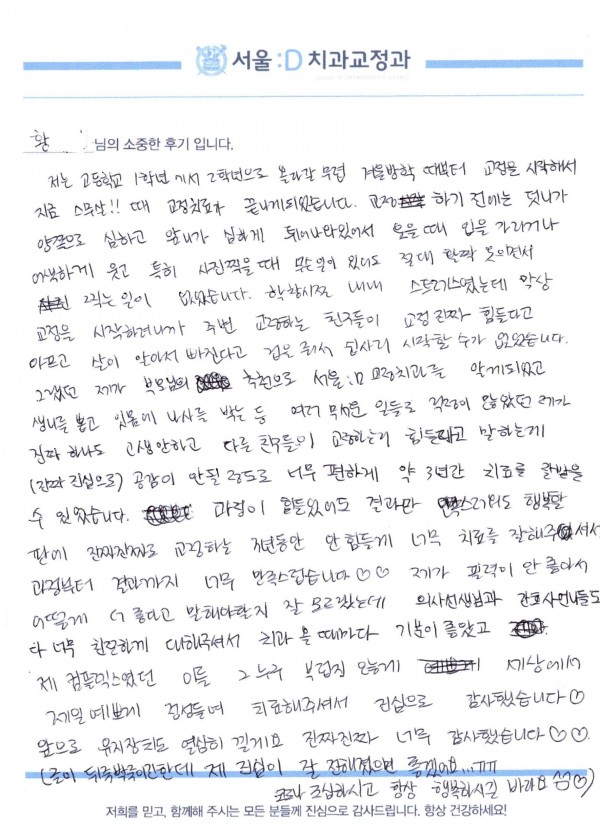 서울 :D 치과교정과
황 님의 소중한 후기 입니다.
저는 고등학교 1학년에서 2학년으로 올라갈 무렵 겨울방학 때부터 교정을 시작해서
지금 스무살!! 때 교정치료가 끝나게되었습니다. 교정 하기 전에는 덧니가
양쪽으로 심하고 앞니가 심하게 튀어나와있어서 웃을때 입을 가리거나
어색하게 웃고 특히 사진찍을때 무슨일이 있어도 절대 활짝 웃으면서
찍는일이 없었습니다. 학창시절 내내 스트레스였는데 막상
교정을 시작하려니까 주변 교정하는 친구들이 교정 진짜 힘들다고
아프고 살이 앓아서 빠진다고 겁을 줘서 쉽사리 시작할 수가 없었습니다.
그랬던 제가 부모님의 추천으로 서울:D 교정치과를 알게되었고
생니를 뽑고 잇몸에 나사를 박는 등 여러 무서운 일들로 걱정이 많았던 제가
진짜 하나도 고생안하고 다른 친구들이 교정하는게 힘들다고 말하는게
(진짜 진심으로) 공감이 안될 정도로 너무 편하게 약 3년간 치료를 받을
수 있었습니다. 과정이 힘들었어도 결과만 만족스러워도 행복할
판에 진짜진짜로 교정하는 3년동안 안 힘들게 너무 치료를 잘해주셔서
과정부터 결과까지 너무 만족스럽습니다♡♡ 제가 필력이 안 좋아서
어떻게 더 좋다고 말해야할지 잘 모르겠는데 의사선생님과 간호사언니들도
다 너무 친절하게 대해주셔서 치과 올 때마다 기분이 좋았고
제 컴플렉스였던 이를 그 누구 부럽지 않게 세상에서
제일 예쁘게 정성들여 치료해주셔서 진심으로 감사했습니다♡
앞으로 유지장치도 열심히 낄게요 진짜진짜 너무 감사했습니다♡♡.
(글이 뒤죽박죽이긴한데 제 진심이 잘 전해졌으면 좋겠어요...ㅠㅠ
코로나 조심하시고 항상 행복하시길 바라요 ^^♡)
저희를 믿고, 함께해 주시는 모든 분들께 진심으로 감사드립니다. 항상 건강하세요!